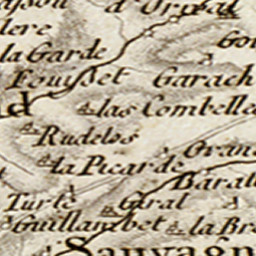 d'Orival
lere
la Garde
Fouisset Garach
las Combelle
Rudelos
la Picarde
Turle Gural
Guillambet la Br
Sauvagn